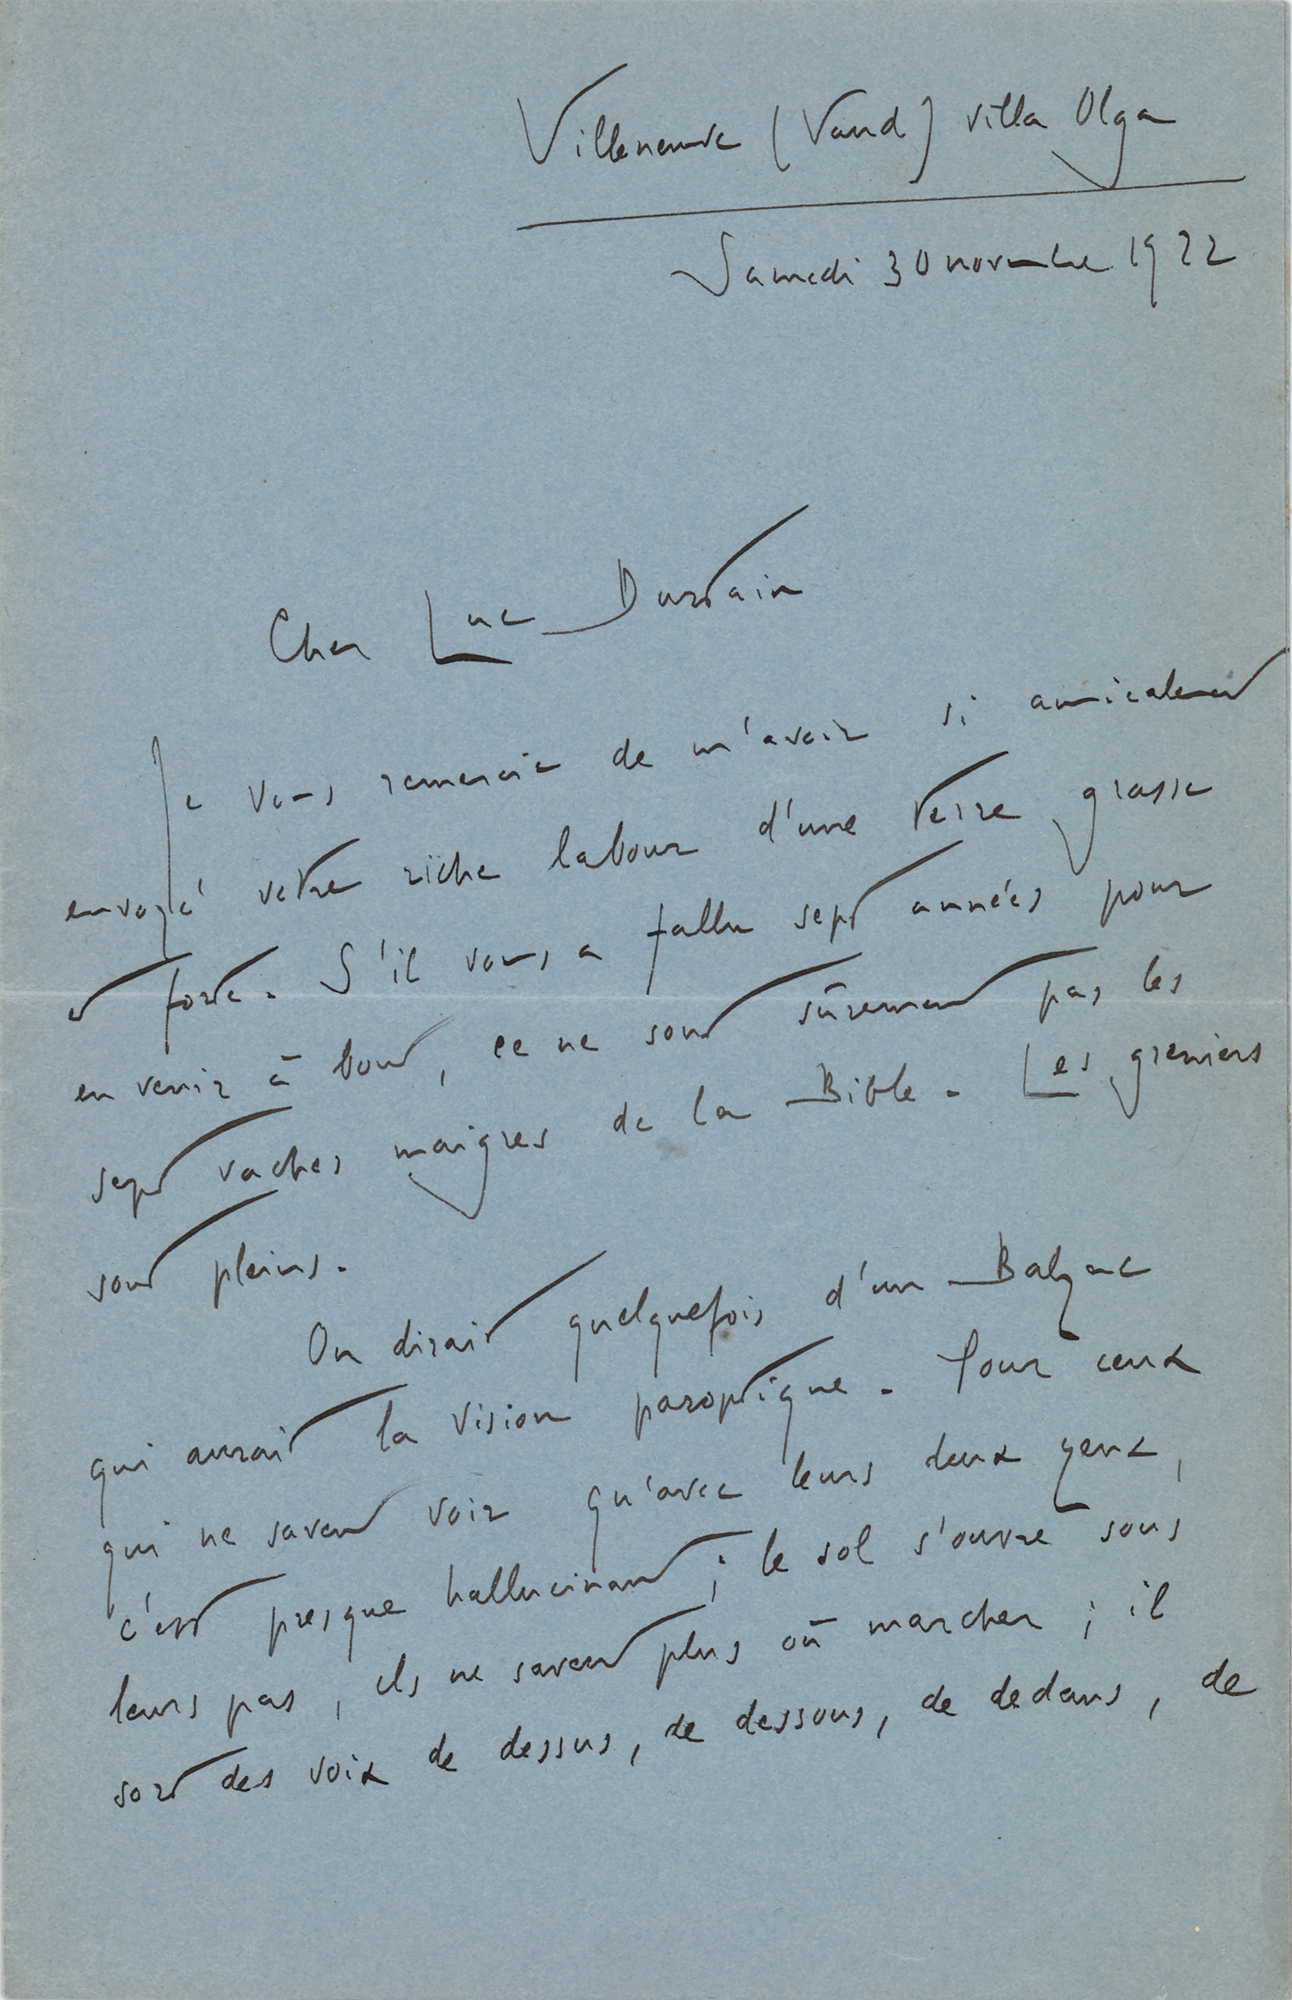 Villeneuve (Vaud) villa Olga
Samedi 30 novembre 1922
Cher Luc Durtain
Je vous remercie de m'avoir si amicalement
envoyé votre riche labour d'une terre grasse
et forte. S'il vous a fallu sept années pour
en venir à bout, ce ne sont sûrement pas les
sept vaches maigres de la Bible. Les greniers
sont pleins.
On dirait quelquefois d'un Balzac
qui aurait la vision paroptique. Pour ceux
qui ne savent voir qu'avec leurs deux yeux,
c'est presque hallucinant ; le sol s'ouvre sous
leurs pas, ils ne savent plus où marcher ; il
sort des voix de dessus, de dessous, de dedans, de